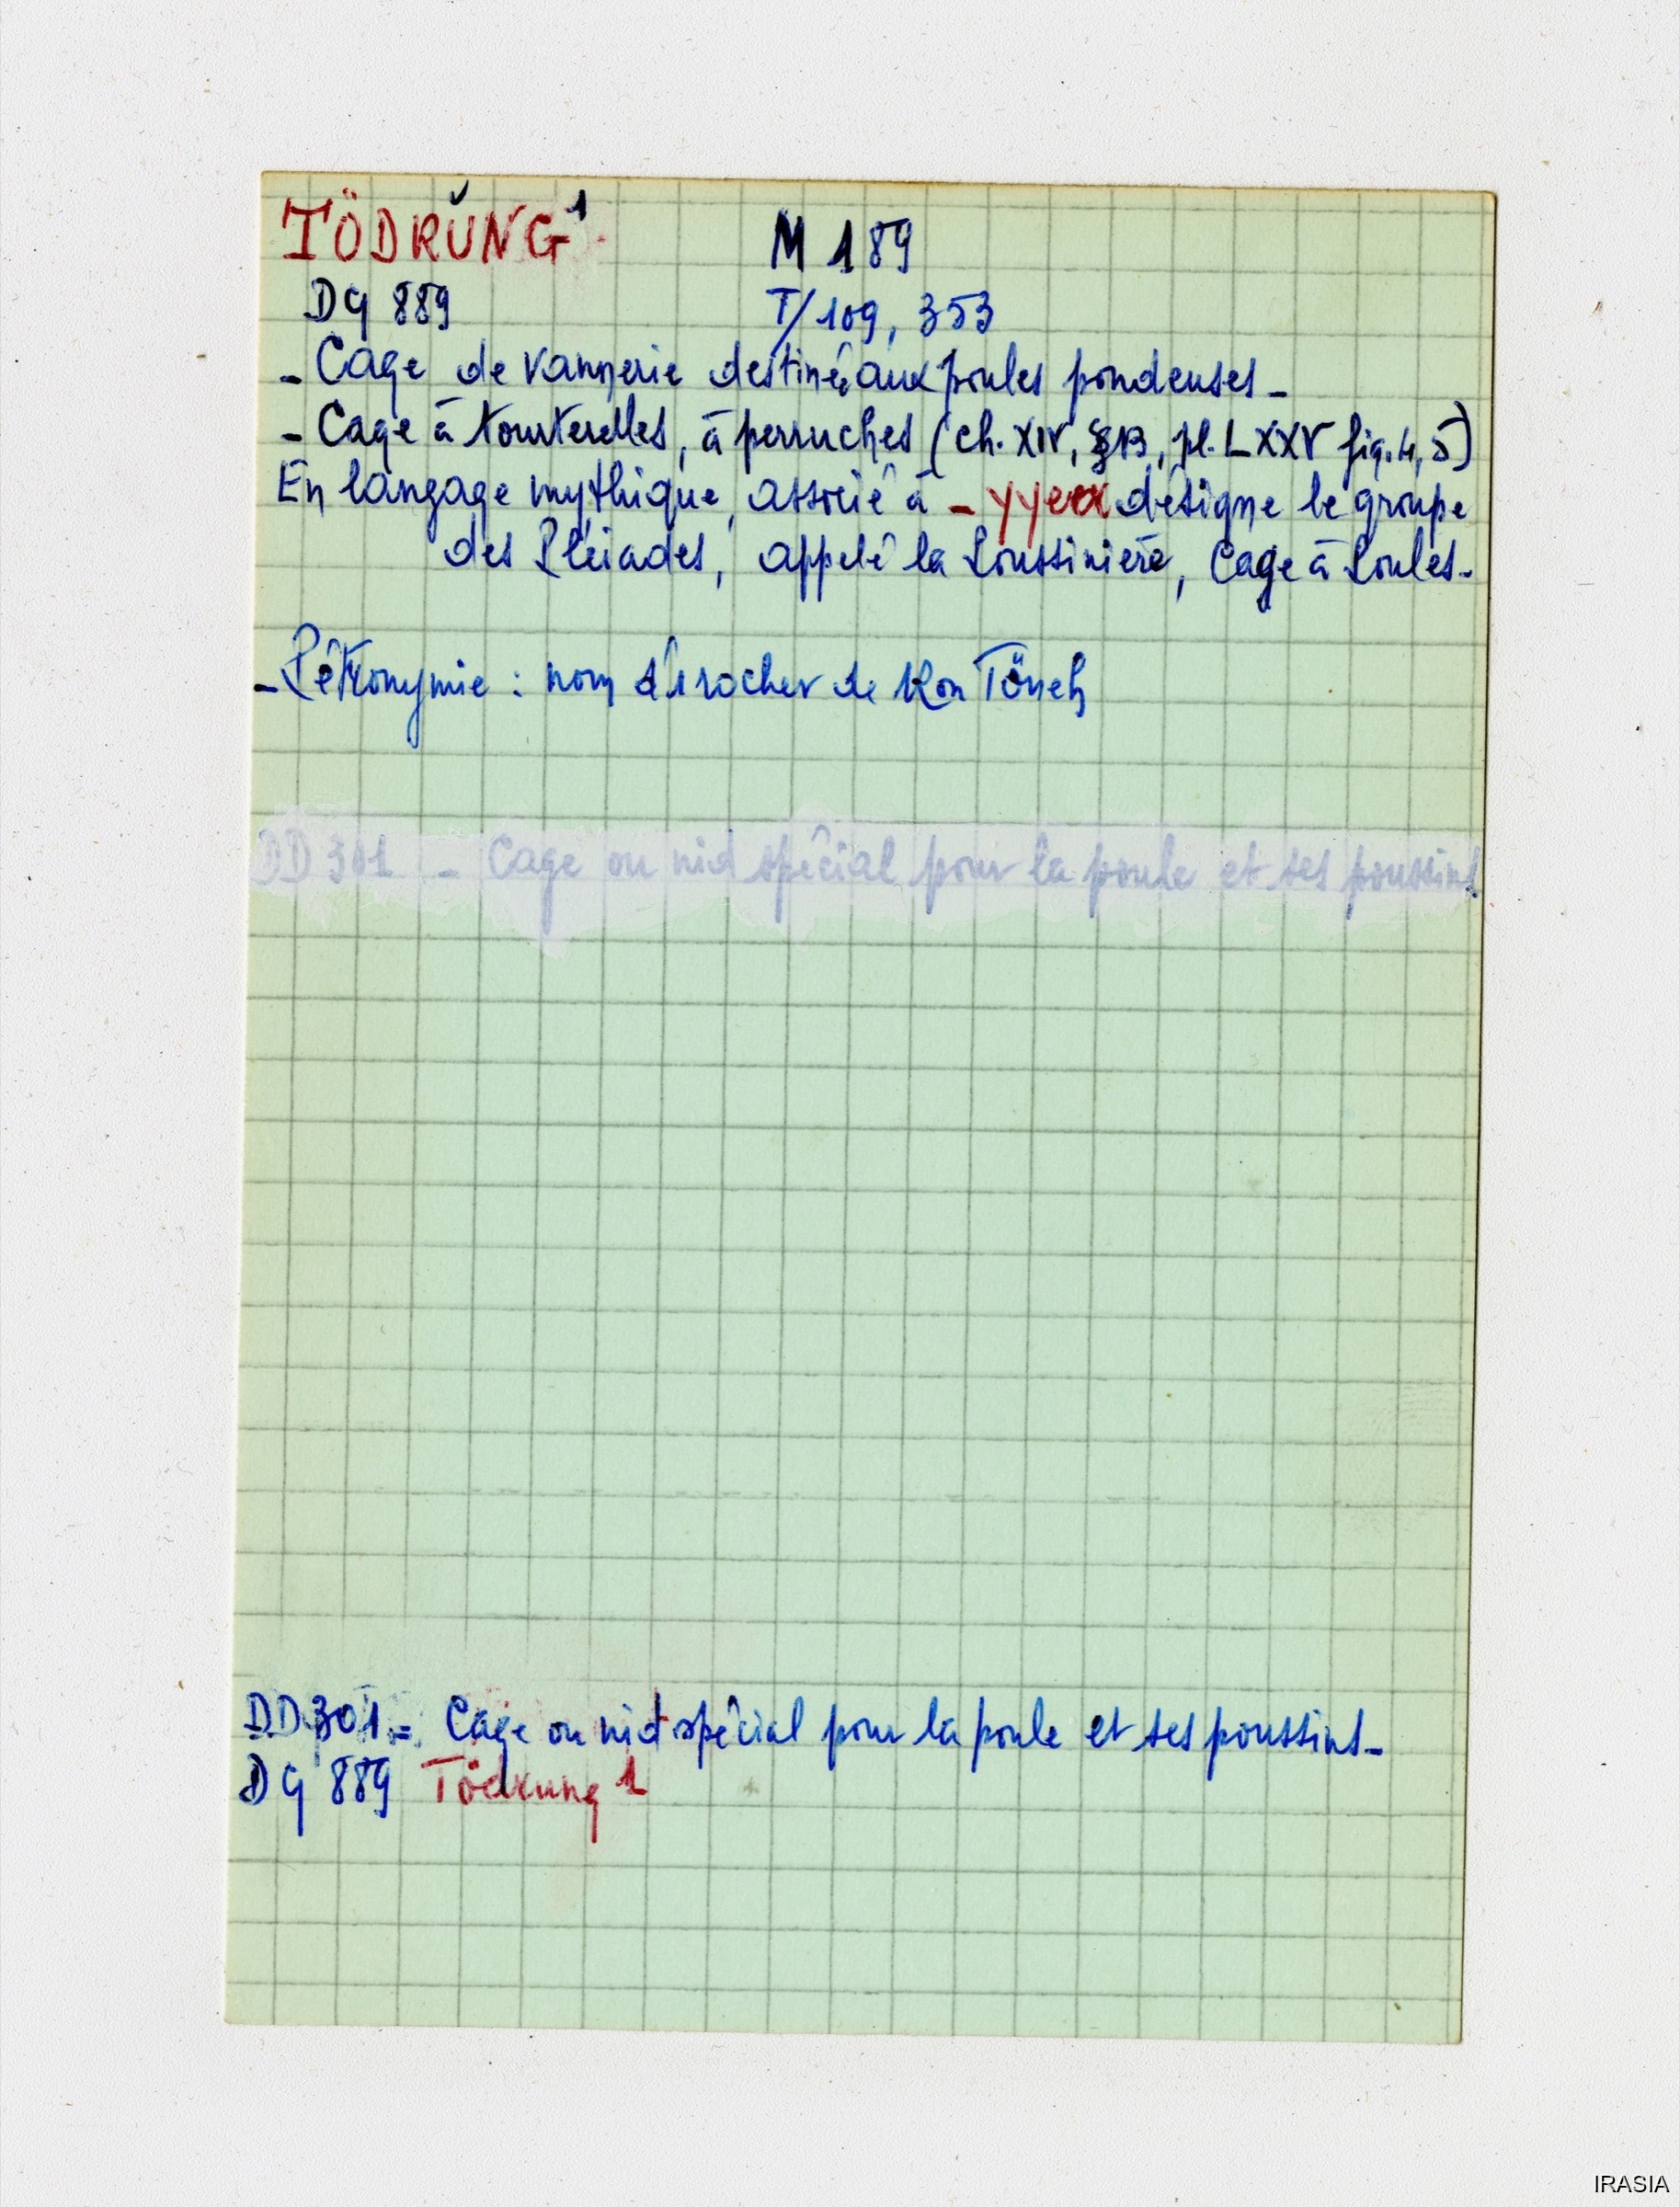 TÖDRŬNG¹ M 189
DG 889 T/109, 353
- Cage de vannerie destinée aux poules pondeuses -
- Cage à tourterelles, à perruches (ch. XIV, §B, pl. LXXV fig. 4, 5)
En langage mythique, associé à - désigne le groupe
des Pléiades, appelé la Poussinière, Cage à Poules -
- Pétronymie : nom d'1 rocher de Kon
DD 301 - Cage ou nid spécial pour la poule et ses poussins
DD 301 - Cage ou nid spécial pour la poule et ses poussins -
DG 889 Tödrung 1
IRASIA